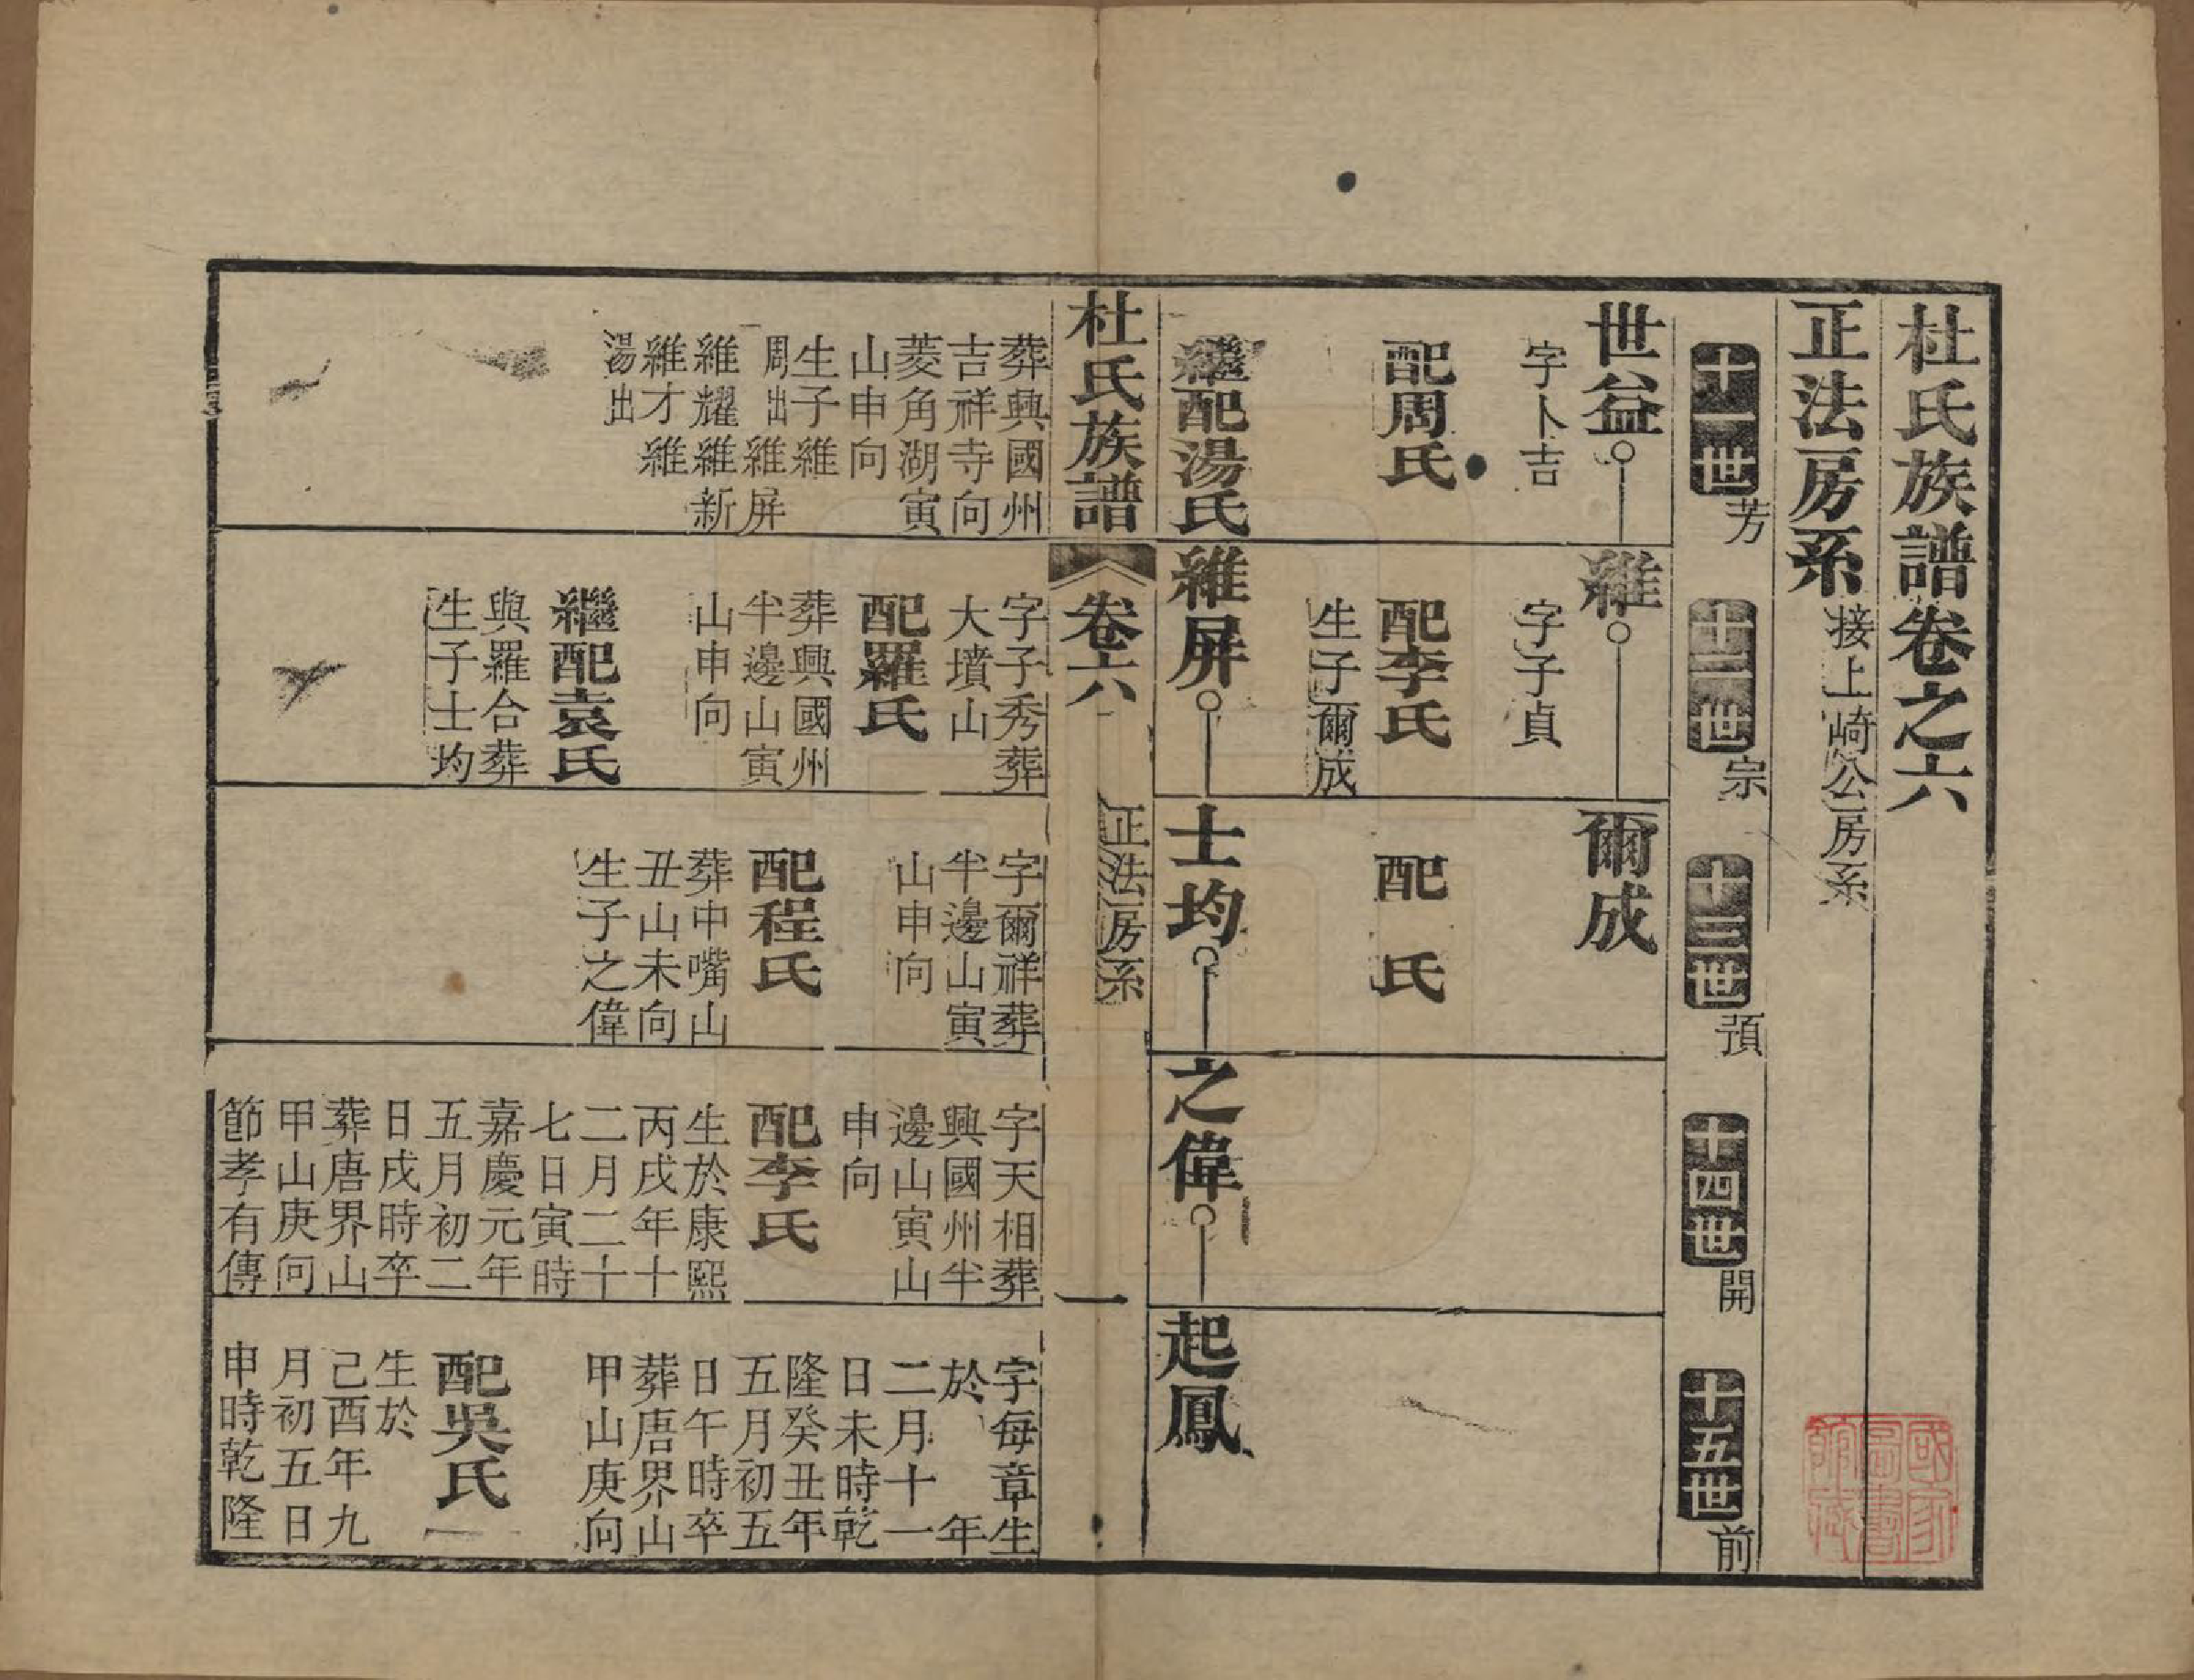 杜氏族譜卷之六
正法房系 接上崎公房系
十一世 芳
十二世 宗
十三世 預
十四世 開
十五世 前
世益
字卜吉
配周氏
繼配湯氏
維
字子貞
配李氏
生子爾成
維屏
爾成
配 氏
士均
之偉
起鳳
杜氏族譜
卷六
正法房系
一
葬興國州
吉祥寺向
菱角湖寅
山申向
生子維
周出 維屏
維耀維新
維才維
湯出
字子秀葬
大墳山
配羅氏
葬興國州
半邊山寅
山申向
繼配袁氏
與羅合葬
生子士均
字爾祥葬
半邊山寅
山申向
配程氏
葬中嘴山
丑山未向
生子之偉
字天相葬
興國州半
邊山寅山
申向
配李氏
生於康熙
丙戌年十
二月二十
七日寅時
嘉慶元年
五月初二
日戌時卒
葬唐界山
甲山庚向
節孝有傳
字每章生
於 年
二月十一
日未時乾
隆癸丑年
五月初五
日午時卒
葬唐界山
甲山庚向
配吳氏
生於
己酉年九
月初五日
申時乾隆
國家
圖書
館藏